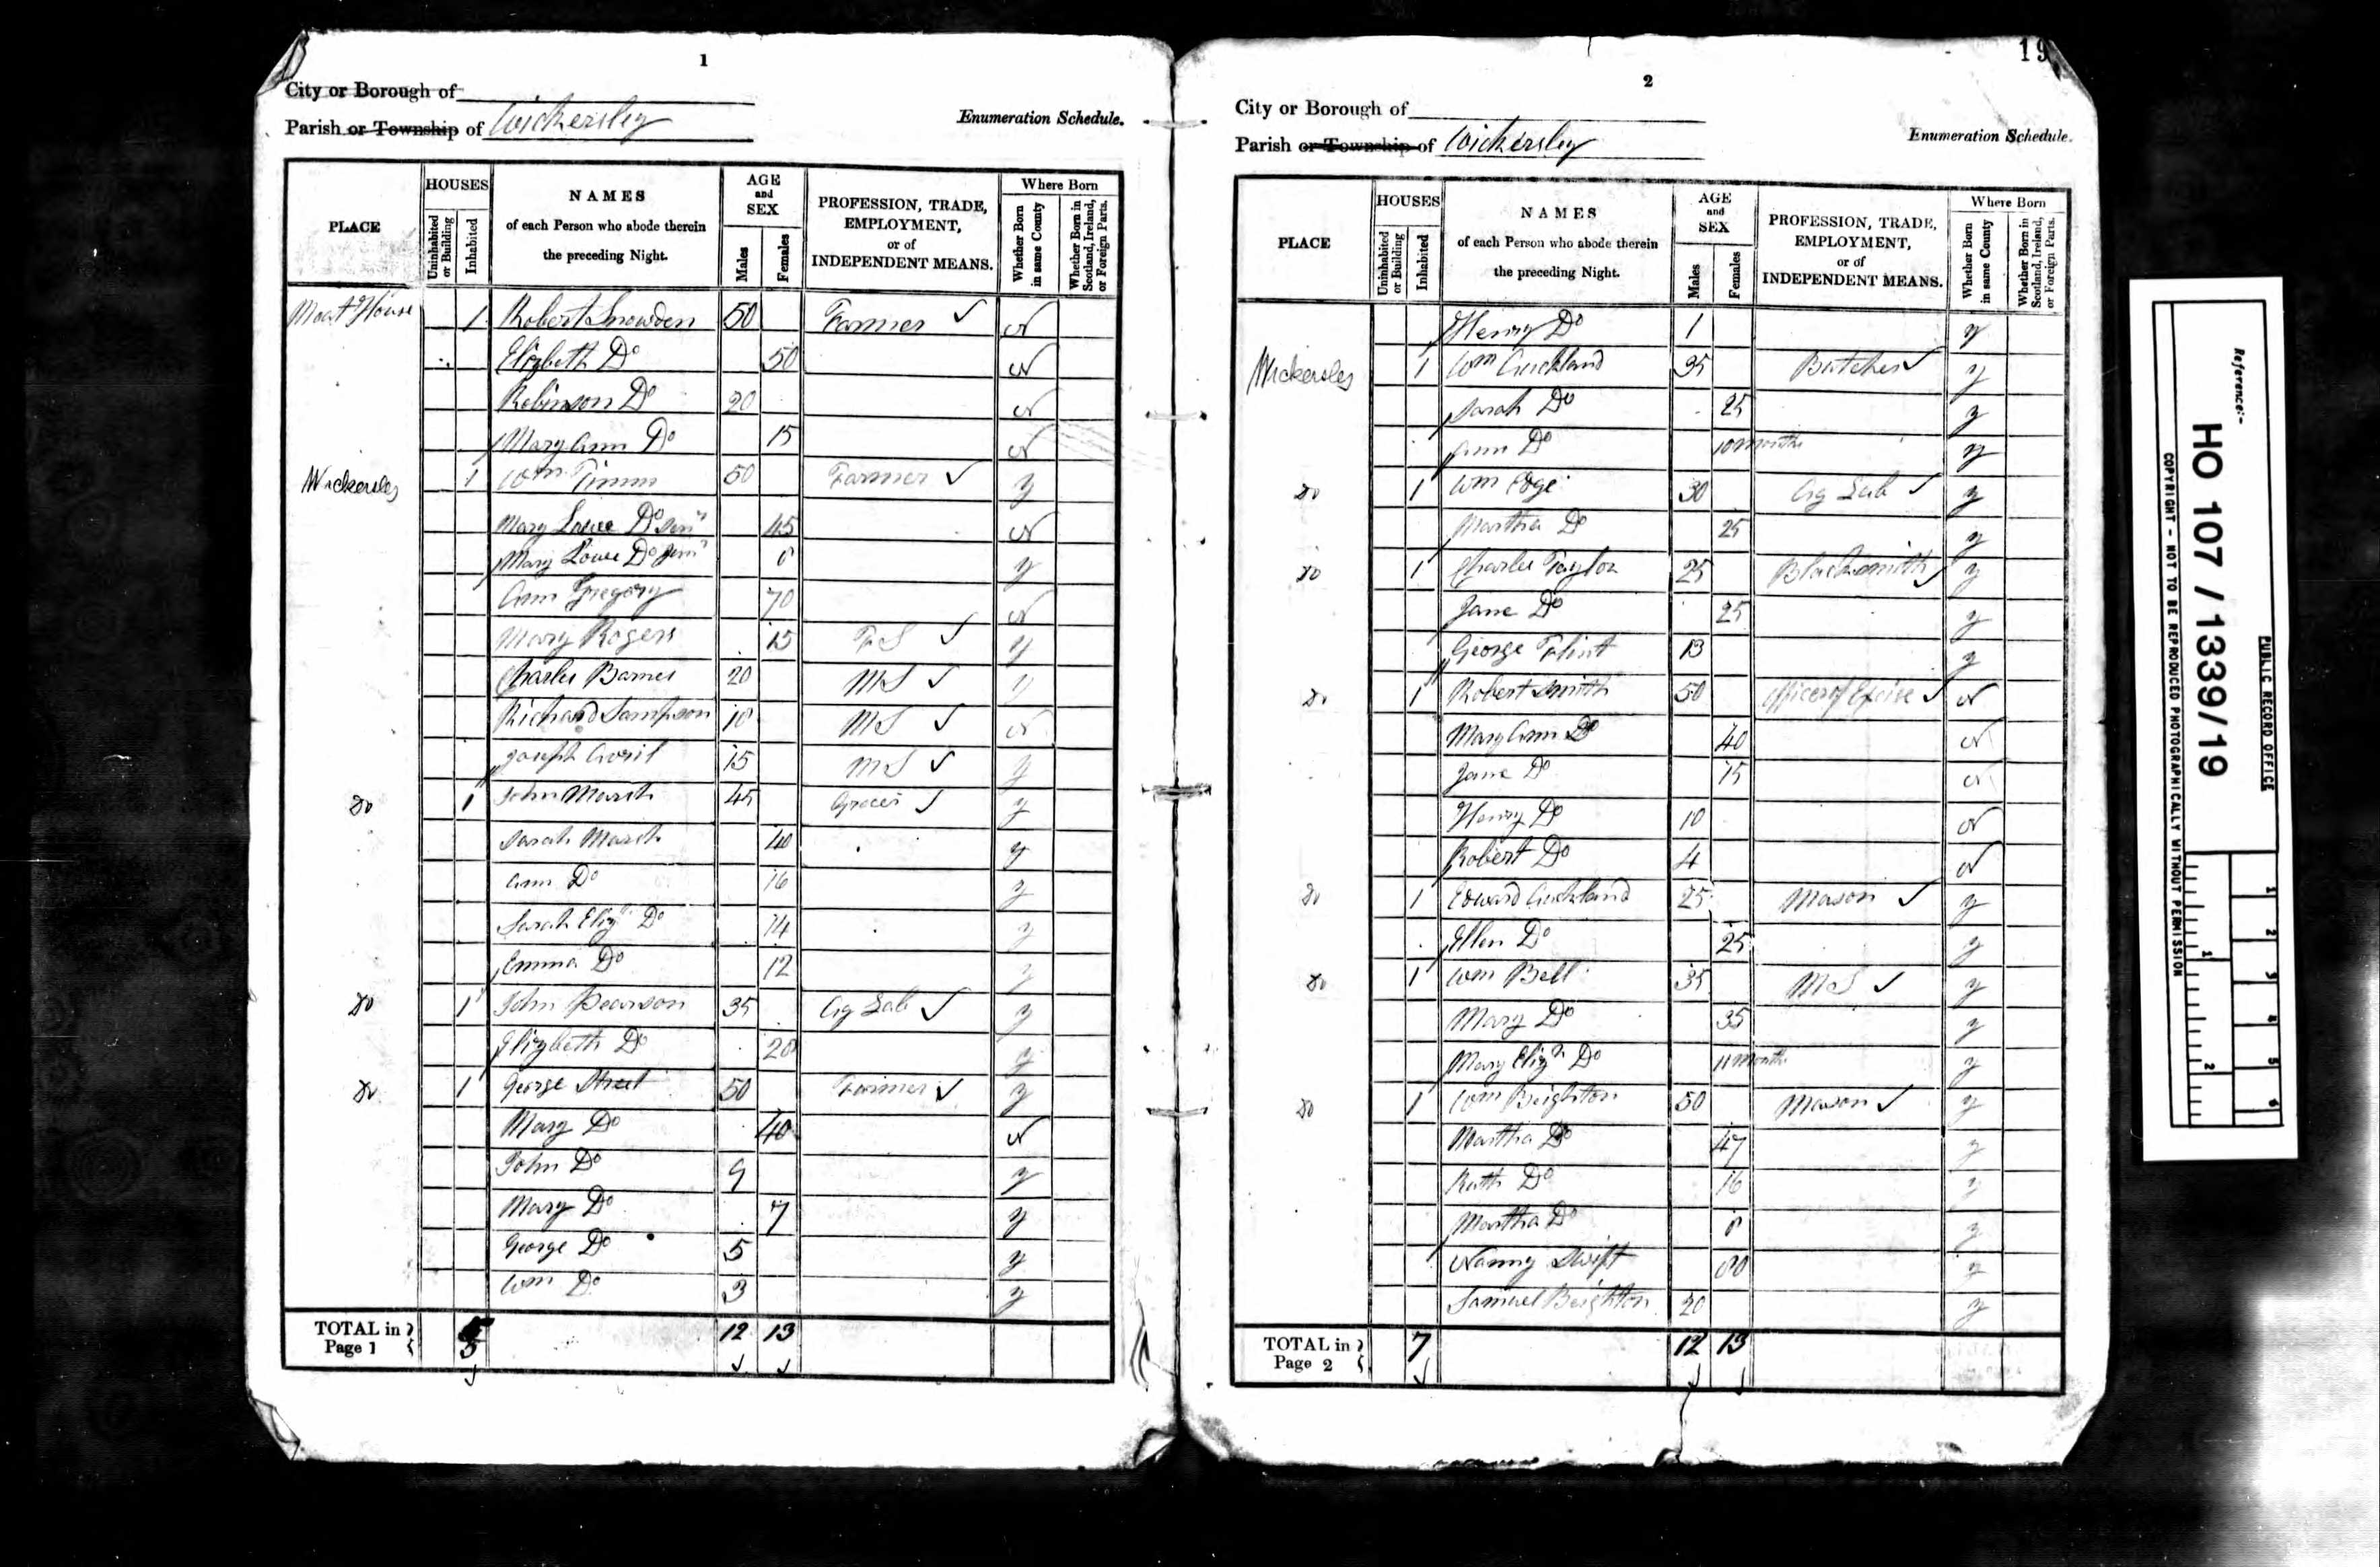 1
City or Borough of
Parish or Township of Wickersley
Enumeration Schedule.
PLACE
HOUSES
Uninhabited or Building
Inhabited
NAMES
of each Person who abode therein
the preceding Night.
AGE
and
SEX
Males
Females
PROFESSION, TRADE,
EMPLOYMENT,
or of
INDEPENDENT MEANS.
Where Born
Whether Born in same County
Whether Born in Scotland, Ireland, or Foreign Parts.
Moat House 1 Robert Snowden 50 Farmer ✓ N
Elizbeth Do 50 N
Robinson Do 20 N
Mary Ann Do 15 N
Wickersley 1 Wm Timm 50 Farmer ✓ y
Mary Lowe Do Senr 45 N
Mary Lowe Do Junr 8 y
Ann Gregory 70 N
Mary Rogers 15 FS ✓ y
Charles Barnes 20 MS ✓ y
Richard Sampson 18 MS ✓ N
Joseph Avril 15 MS ✓ y
Do 1 John Marsh 45 Grocer ✓ y
Sarah Marsh 40 y
Ann Do 16 y
Sarah Elizh Do 14 y
Emma Do 12 y
Do 1 John Pearson 35 Ag Lab ✓ y
Elizbeth Do 20 y
Do 1 George Street 50 Farmer ✓ y
Mary Do 40 N
John Do 9 y
Mary Do 7 y
George Do 5 y
Wm Do 3 y
TOTAL in Page 1 5 12 13
19
2
City or Borough of
Parish or Township of Wickersley
Enumeration Schedule.
PLACE
HOUSES
Uninhabited or Building
Inhabited
NAMES
of each Person who abode therein
the preceding Night.
AGE
and
SEX
Males
Females
PROFESSION, TRADE,
EMPLOYMENT,
or of
INDEPENDENT MEANS.
Where Born
Whether Born in same County
Whether Born in Scotland, Ireland, or Foreign Parts.
Henry Do 1 y
Wickersley 1 Wm Cuckland 35 Butcher ✓ y
Sarah Do 25 y
Ann Do 10 months y
Do 1 Wm Edge 30 Ag Lab ✓ y
Martha Do 25 y
Do 1 Charles Taylor 25 Blacksmith ✓ y
Jane Do 25 y
George Flint 13 y
Do 1 Robert Smith 50 Officer of Excise ✓ N
Mary Ann Do 40 N
Jane Do 15 N
Henry Do 10 N
Robert Do 4 N
Do 1 Edward Cuckland 25 Mason ✓ y
Ellen Do 25 y
Do 1 Wm Bell 35 MS ✓ y
Mary Do 35 y
Mary Elizh Do 11 months y
Do 1 Wm Beighton 50 Mason ✓ y
Martha Do 47 y
Ruth Do 16 y
Martha Do 8 y
Nanny Swift 80 y
Samuel Beighton 20 y
TOTAL in Page 2 7 12 13
Reference:-
HO 107 / 1339/19
PUBLIC RECORD OFFICE
COPYRIGHT - NOT TO BE REPRODUCED PHOTOGRAPHICALLY WITHOUT PERMISSION
1 2 3 4 5 6
1 2